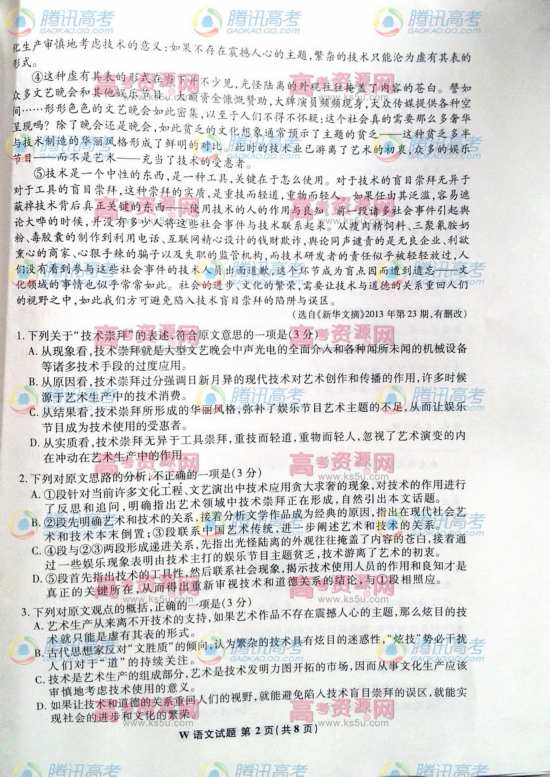 化生产审慎地考虑技术的意义：如果不存在震撼人心的主题，繁杂的技术只能沦为虚有其表的
形式。
④这种虚有其表的形式在当下并不少见，光怪陆离的外观往往掩盖了内容的苍白。譬如
众多文艺晚会和其他娱乐节目，大额资金慷慨赞助，大牌演员频频现身，大众传媒提供各种空
间……形形色色的文艺晚会如此密集，以至于人们不得不怀疑：这个社会真的需要那么多奢华
呈现吗？除了晚会还是晚会，如此贫乏的文化想象通常预示了主题的贫乏——这种贫乏多半
与技术制造的华丽风格形成了鲜明的对比。此时的技术业已游离了艺术的初衷，众多的娱乐
节目——而不是艺术——充当了技术的受惠者。
⑤技术是一个中性的东西，是一种工具，关键在于怎么使用。对于技术的盲目崇拜无异于
对于工具的盲目崇拜，这种崇拜的实质，是重技而轻道，重物而轻人。如果任由其泛滥，容易遮
蔽掉技术背后真正关键的东西——使用技术的人的作用与良知。前一段诸多社会事件引起舆
论大哗的时候，并没有多少人将这些社会事件与技术联系起来。从瘦肉精饲料、三聚氰胺奶
粉、毒胶囊的制作到利用电话、互联网精心设计的钱财欺诈，舆论同声谴责的是无良企业、利欲
熏心的商家、心狠手辣的骗子以及失职的监管机构，而技术研发者的责任似乎被轻轻放过，人
们没有看到参与这些社会事件的技术人员出面道歉，这个环节成为盲点因而遭到遗忘——文
化领域的事情也似乎常常如此。社会的进步、文化的繁荣，需要让技术与道德的关系重回人们
的视野之中，如此我们方可避免陷入技术盲目崇拜的陷阱与误区。
（选自《新华文摘》2013年第23期，有删改）
1.下列关于“技术崇拜”的表述，符合原文意思的一项是（3分）
A.从现象看，技术崇拜就是大型文艺晚会中声光电的全面介入和各种闻所未闻的机械设备
等诸多技术手段的过度应用。
B.从原因看，技术崇拜过分强调日新月异的现代技术对艺术创作和传播的作用，许多时候
源于艺术生产中的技术消费。
C.从结果看，技术崇拜所形成的华丽风格，弥补了娱乐节目艺术主题的不足，从而让娱乐
节目成为技术使用的受惠者。
D.从实质看，技术崇拜无异于工具崇拜，重技而轻道，重物而轻人，忽视了艺术演变的内
在冲动在艺术生产中的作用。
2.下列对原文思路的分析，不正确的一项是（3分）
A.①段针对当前许多文化工程、文艺演出中技术应用贪大求奢的现象，对技术的作用进行
了反思和追问，明确指出艺术领域中技术崇拜正在形成，自然引出本文话题。
B.②段先明确艺术和技术的关系，接着分析文学作品成为经典的原因，指出在现代社会艺
术和技术本末倒置；③段联系中国艺术传统，进一步阐述艺术和技术的关系。
C.④段与②③两段形成递进关系，先指出光怪陆离的外观往往掩盖了内容的苍白，接着通
过一些娱乐现象表明由技术主打的娱乐节目主题贫乏，技术游离了艺术的初衷。
D.⑤段首先指出技术的工具性，然后联系社会现象，揭示技术使用人员的作用和良知才是
真正的关键所在，从而得出重新审视技术和道德关系的结论，与①段相照应。
3.下列对原文观点的概括，正确的一项是（3分）
A.艺术生产从来离不开技术的支持，如果艺术作品不存在震撼人心的主题，那么炫目的技
术就只能是虚有其表的形式。
B.古代思想家反对“文胜质”的倾向，认为繁杂的技术具有炫目的迷惑性，“炫技”势必干扰
人们对于“道”的持续关注。
C.技术是艺术生产的组成部分，艺术是技术发明力图开拓的市场，因而从事文化生产应该
审慎地考虑技术使用的意义。
D.如果让技术和道德的关系重回人们的视野，就能避免陷入技术盲目崇拜的误区，就能实
现社会的进步和文化的繁荣。
W 语文试题 第2页（共8页）
腾讯高考
GAOKAO.QQ.COM
高考资源网
www.ks5u.com